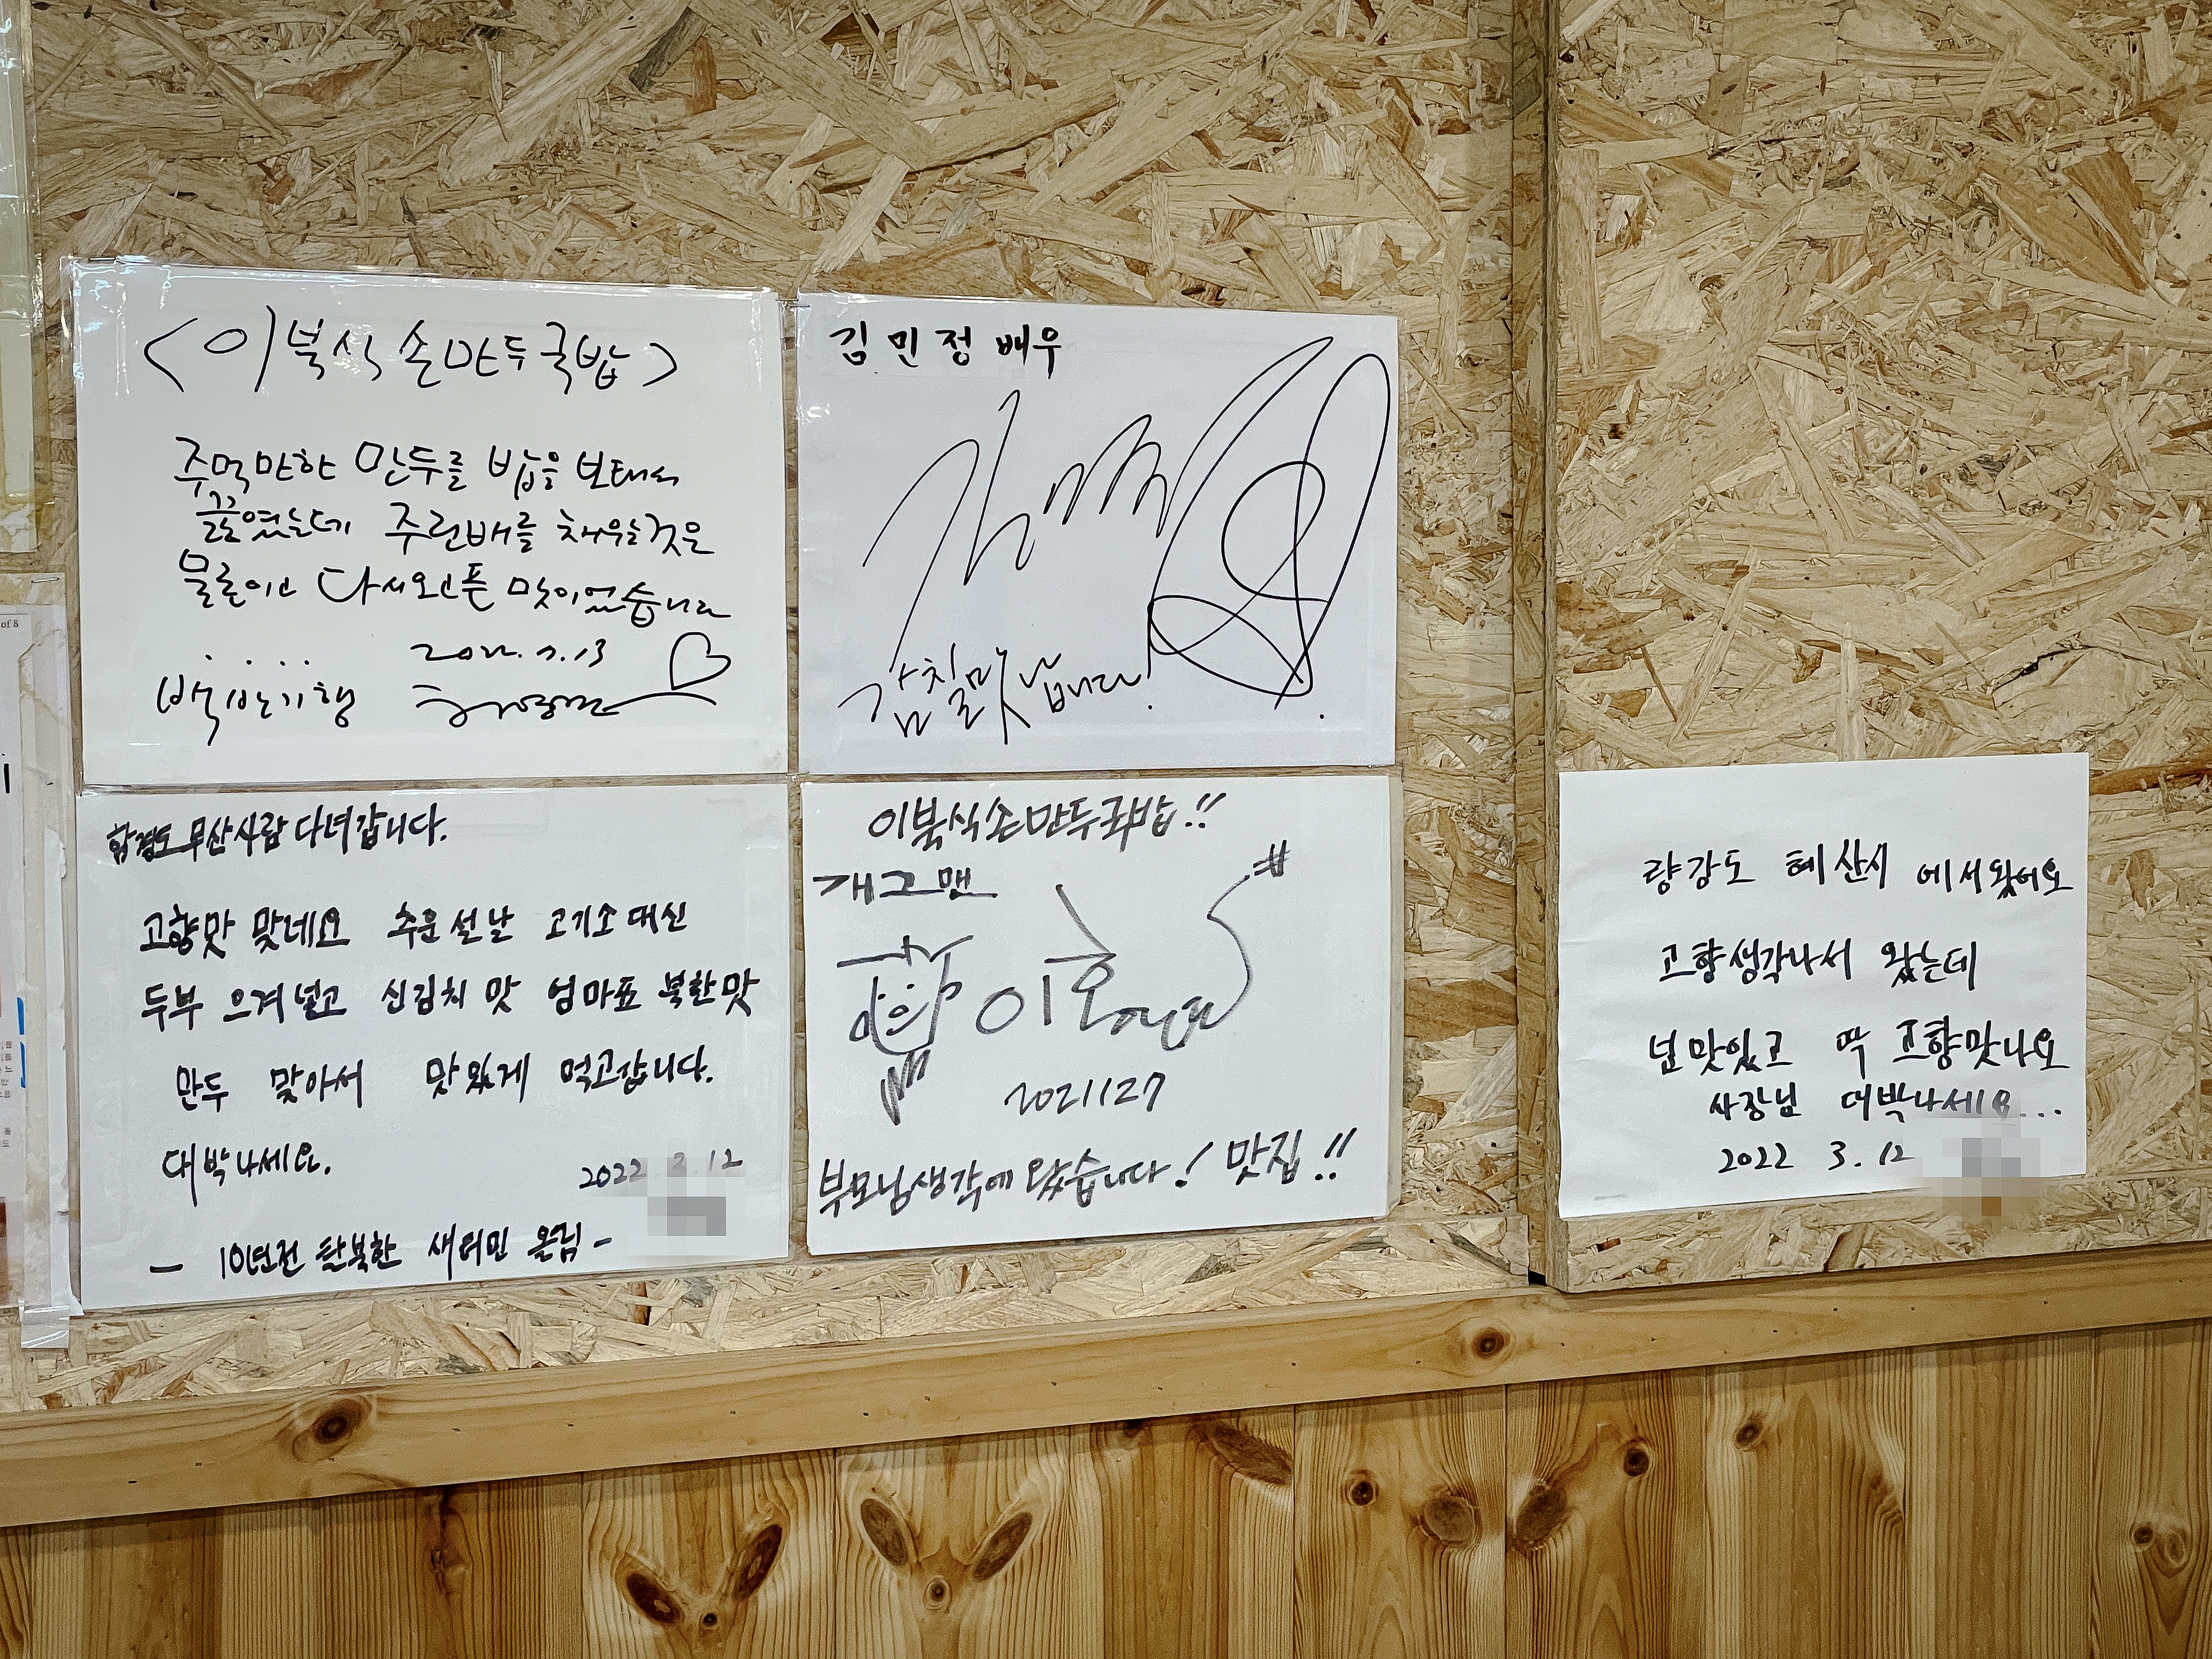 <이북식 손만두국밥>
주먹만한 만두를 밥을 보태서
끓였는데 주린배를 채우는것은
물론이고 다시오고픈 맛이었습니다
2022. 1. 13
백반기행
김민정 배우
감칠맛 납니다!
함경도 무산사람 다녀갑니다.
고향맛 맞네요 추운 설날 고기소 대신
두부 으겨넣고 신김치 맛 엄마표 북한맛
만두 맞아서 맛있게 먹고갑니다.
대박나세요.
2022 3. 12
- 10년전 탈북한 새터민 올림 -
이북식손만두국밥!!
개그맨
2021127
부모님생각에 왔습니다! 맛집!!
량강도 혜산시 에서왔어요
고향생각나서 왔는데
넘맛있고 딱 고향맛나요
사장님 대박나세요...
2022 3. 12
of 8